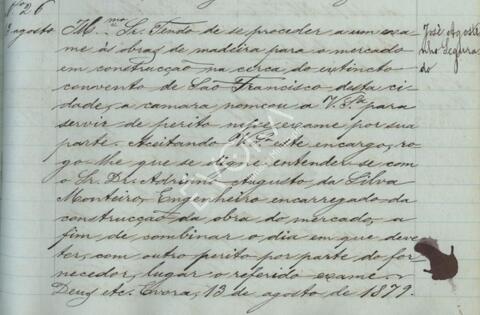 Nº 26
3 agosto
José Agosti-
nho Segura-
do
Il.mo Sr. Tendo de se proceder a um exa-
me ás obras de madeira para o mercado
em construcção na cêrca do extincto
convento de São Francisco desta ci-
dade, a camara nomeou a V. S.ª para
servir de perito nesse exame por sua
parte. Aceitando V. S.ª este encargo, ro-
go-lhe que se digne entender-se com
o Sr. Dr. Adriano Augusto da Silva
Monteiro, Engenheiro encarregado da
construcção da obra do mercado, a
fim de combinar o dia em que deve
ter, com outro perito por parte do for-
necedor, lugar o referido exame.
Deus etc. Evora, 13 de agosto de 1879.